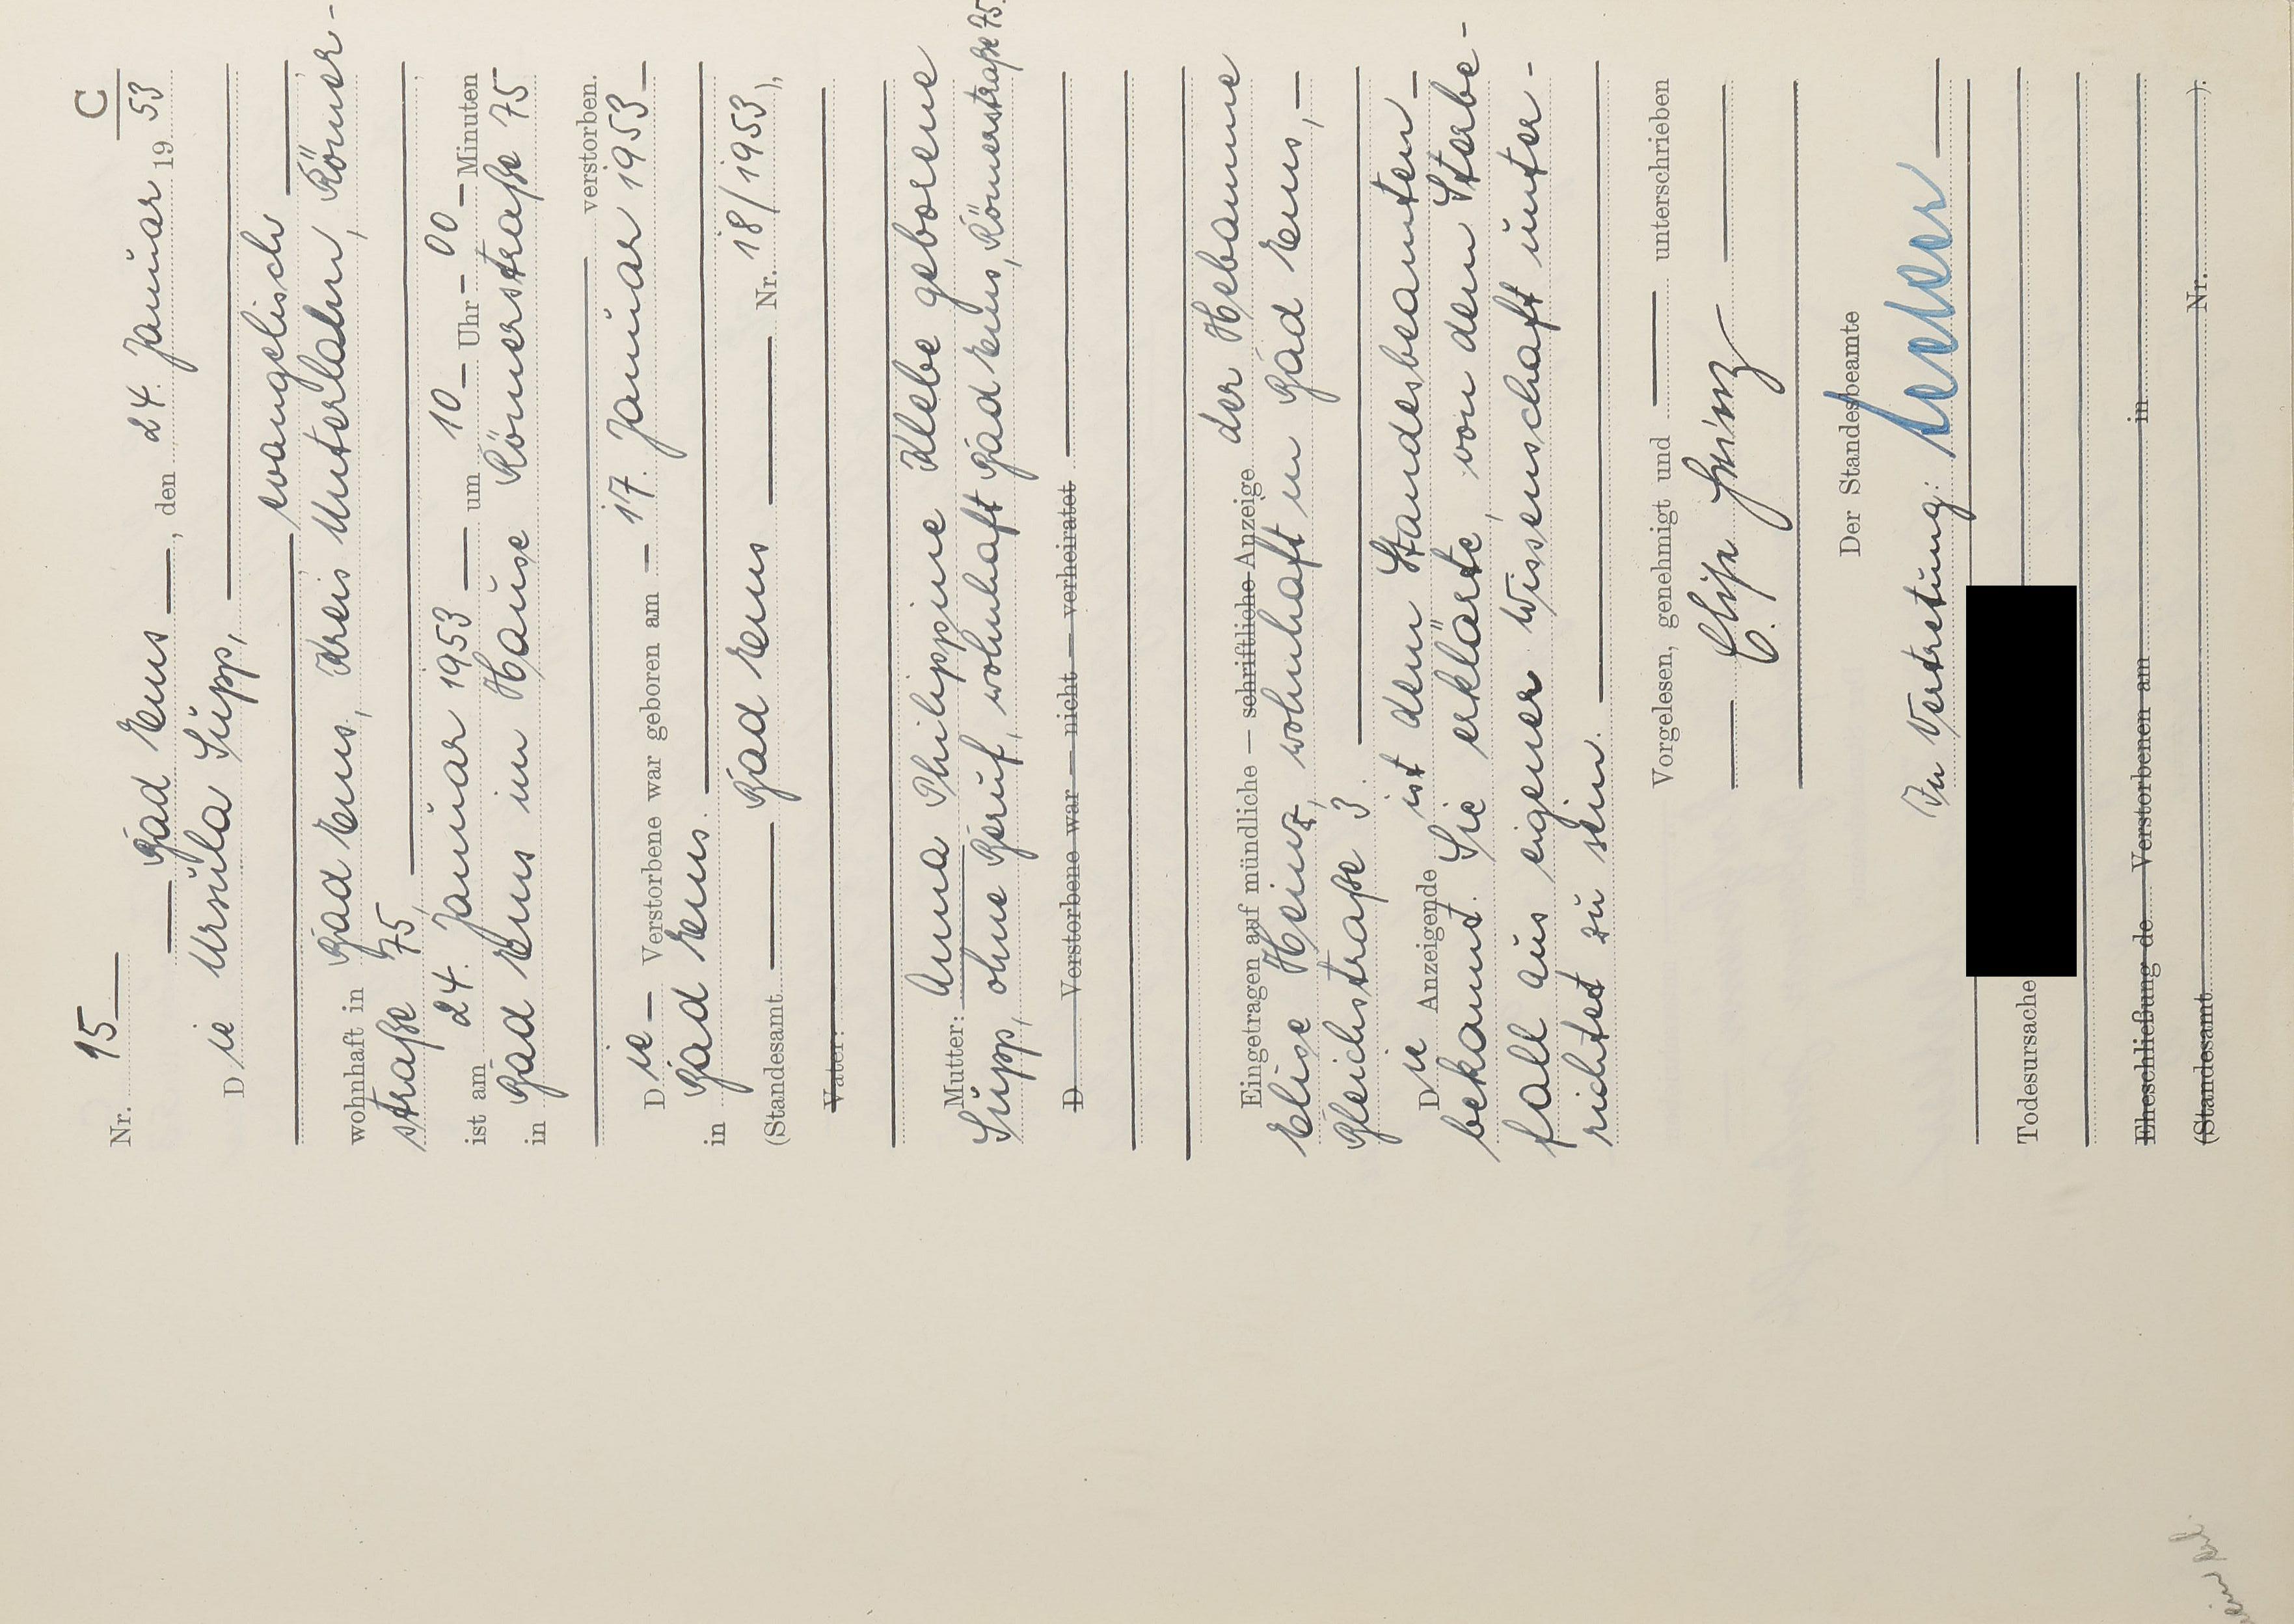 C
Nr. 15
Bad Ems, den 24. Januar 1953
Die Ursula Supp,
evangelisch
wohnhaft in Bad Ems, Kreis Unterlahn, Römer-
straße 75,
ist am 24. Januar 1953 um 10 Uhr 00 Minuten
in Bad Ems im Hause Römerstraße 75
verstorben.
Die Verstorbene war geboren am 17. Januar 1953
in Bad Ems.
(Standesamt Bad Ems Nr. 18/1953),
Vater:
Mutter: Anna Philippine Klebe geborene
Supp, ohne Beruf, wohnhaft Bad Ems, Römerstraße 75.
D Verstorbene war — nicht — verheiratet
Eingetragen auf mündliche — schriftliche Anzeige der Hebamme
Elise Heinz, wohnhaft in Bad Ems,
Bleichstraße 3.
Die Anzeigende ist dem Standesbeamten
bekannt. Sie erklärte, von dem Sterbe-
fall aus eigener Wissenschaft unter-
richtet zu sein.
Vorgelesen, genehmigt und unterschrieben
Elise Heinz
Der Standesbeamte
In Vertretung:
Todesursache
Eheschließung de Verstorbenen am in
(Standesamt Nr. ).